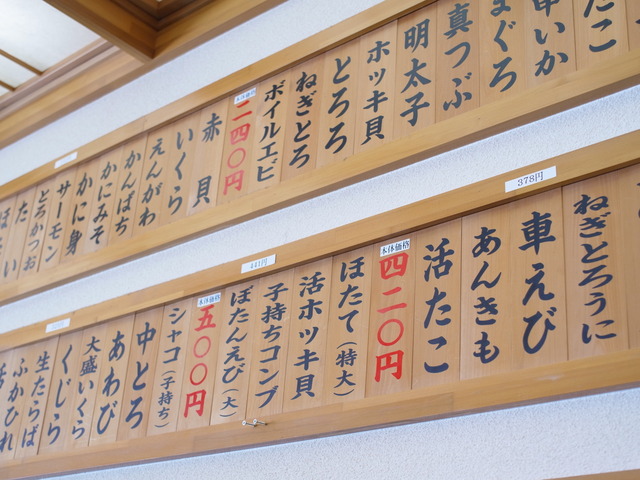 たこ
車いか
まぐろ
真つぶ
明太子
ホッキ貝
とろろ
ねぎとろ
ボイルエビ
本体価格
二四〇円
赤貝
いくら
えんがわ
かんぱち
かにみそ
かに身
サーモン
とろかつお
378円
ねぎとろうに
車えび
あんきも
活たこ
本体価格
四二〇円
ほたて(特大)
活ホッキ貝
子持ちコンブ
441円
ぼたんえび(大)
本体価格
五〇〇円
シャコ(子持ち)
中とろ
あわび
大盛いくら
くじら
生たらば
ふかひれ